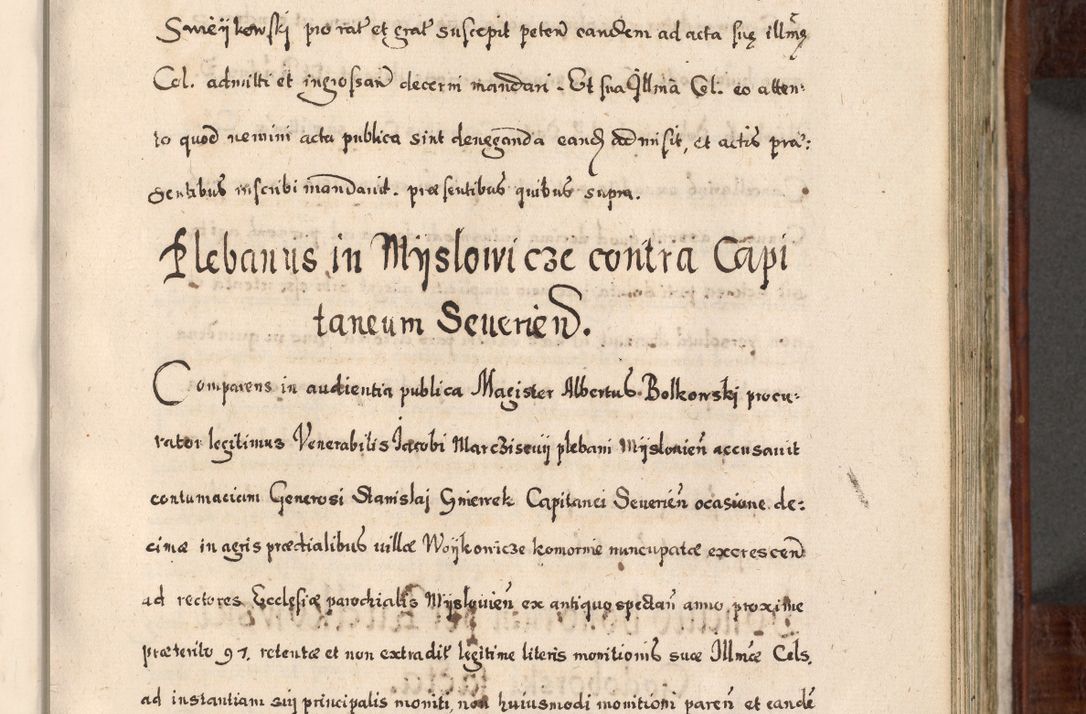 Smeÿkowski pro rat̄ et grat̄ suscepit peteñ eandem ad acta suę illm̃ę
Cel. admitti et ingrossañ decerni mandari. Et sua Illm̃a Cel. eo atten:
to quod nemini acta publica sint deneganda eand̃ admisit, et actis præ:
sentibus inscribi mandavit. præsentibus quibus supra.
Plebanus in Mÿslowicze contra Capi
taneum Severień.
Comparens in audientia publica Magister Albertus Bolkowskj procu:
rator legitimus Venerabilis Jacobi Marcziseuÿ plebani Mÿslouień accusauit
contumaciam Generosi Stanislaj Gnierek Capitanei Seuerień ocasione de:
cimæ in agris prædialibus uillæ Woÿkowicze komornie nuncupatæ excrescen̄
ad rectores Ecclesiæ parochialis Mÿslouień ex antiquo spectań anno proxime
præterito 97. retentæ et non extradit̄ legitime literis monitionis suæ Illmæ Cels.
ad instantiam sui principalis moniti, non huiusmodi monitioni pareń et eandē